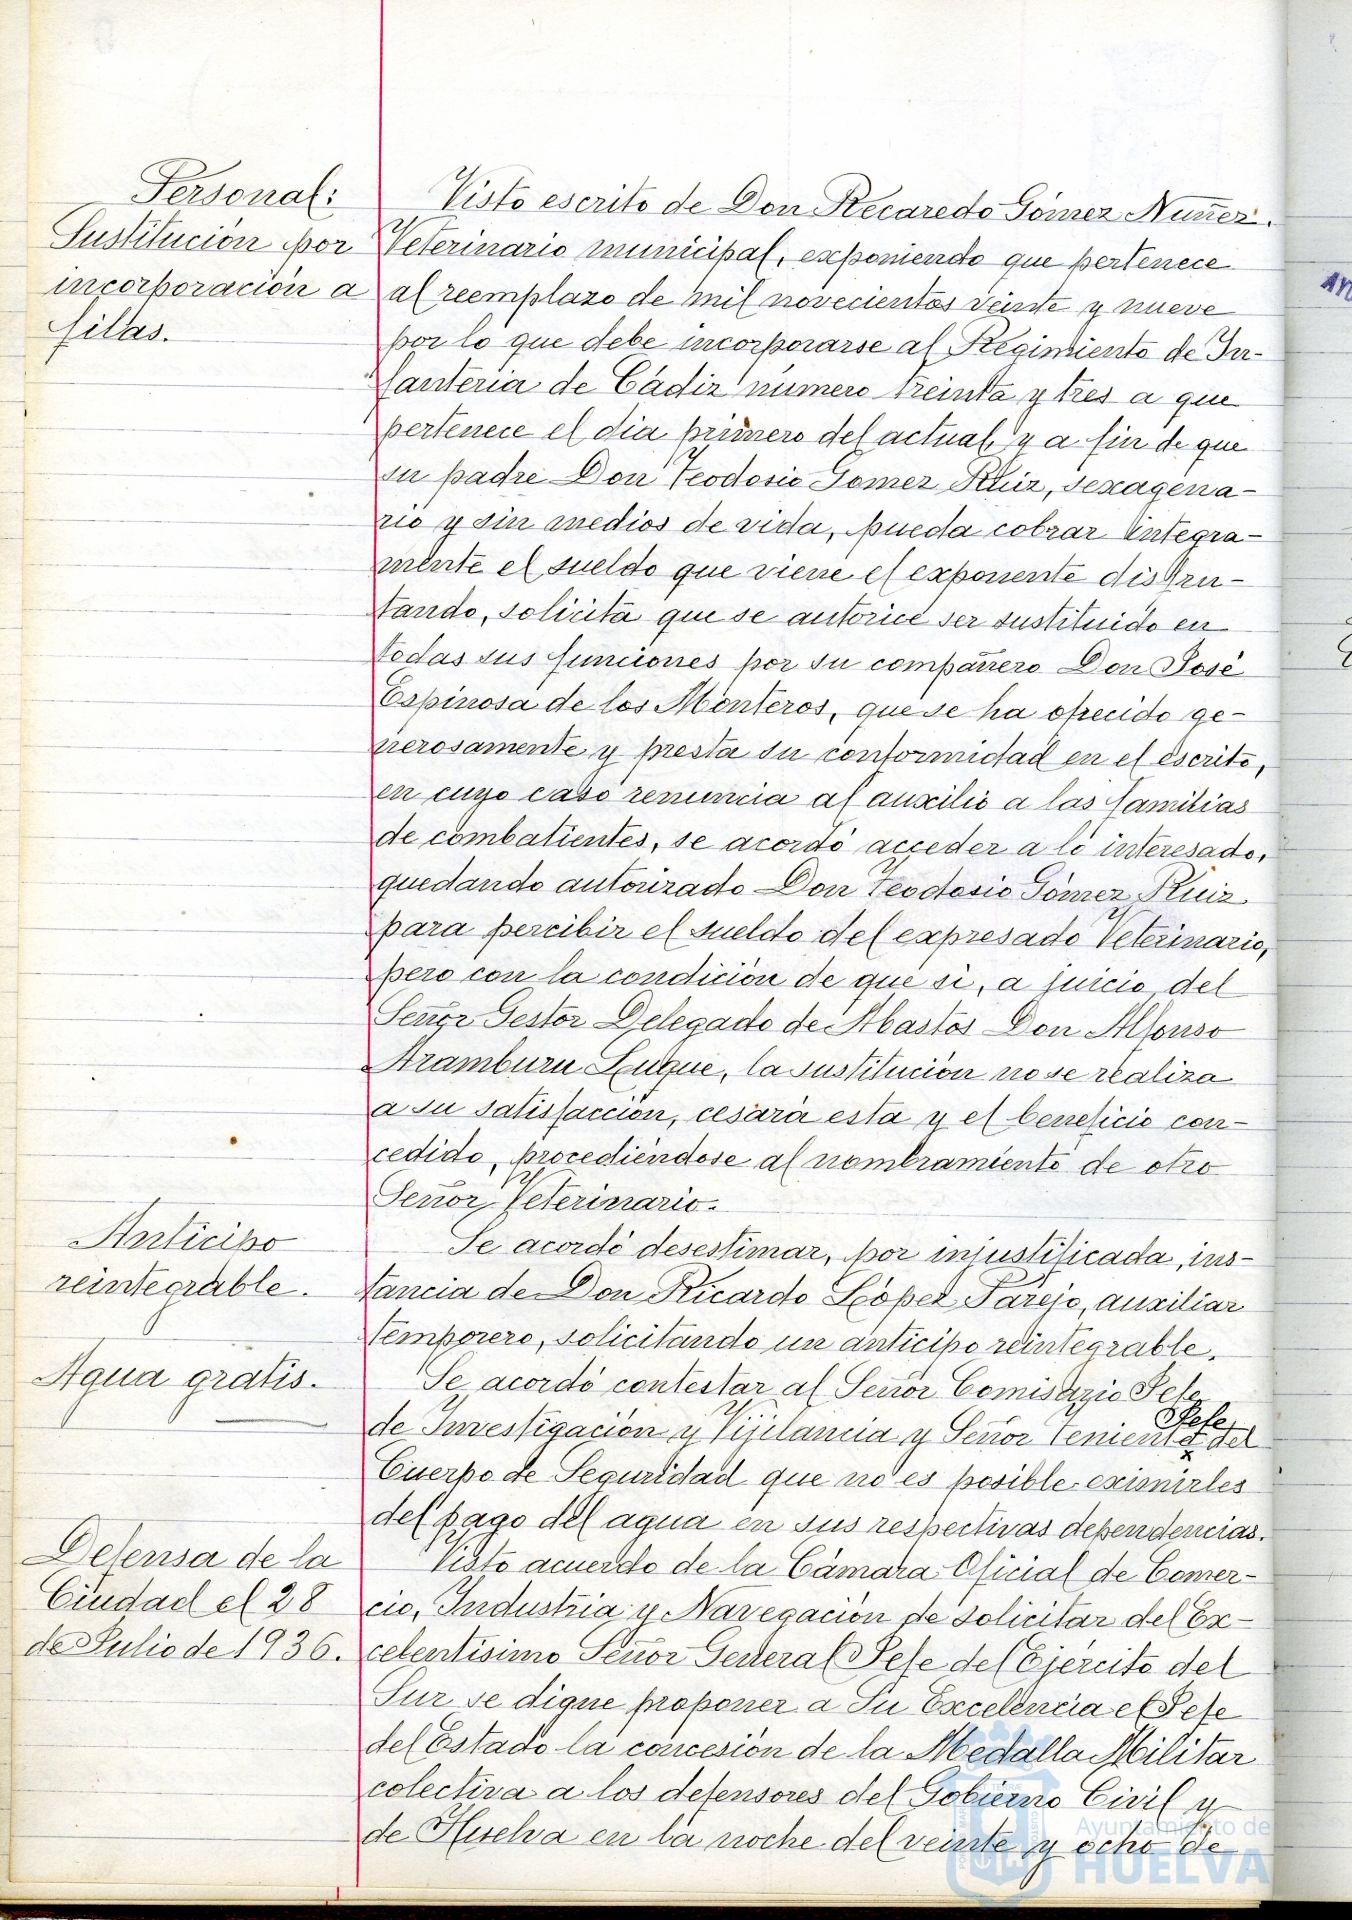 Personal:
Sustitución por
incorporación a
filas.
Visto escrito de Don Recaredo Gómez Nuñez.
Veterinario municipal, exponiendo que pertenece
al reemplazo de mil novecientos veinte y nueve
por lo que debe incorporarse al Regimiento de In-
fanteria de Cádiz número treinta y tres a que
pertenece el dia primero del actual, y a fin de que
su padre Don Teodosio Gomez Ruiz, sexagena-
rio y sin medios de vida, pueda cobrar integra-
mente el sueldo que viene el exponente disfru-
tando, solicita que se autorice ser sustituido en
todas sus funciones por su compañero Don José
Espinosa de los Monteros, que se ha ofrecido ge-
nerosamente y presta su conformidad en el escrito,
en cuyo caso renuncia al auxilio a las familias
de combatientes, se acordó acceder a lo interesado,
quedando autorizado Don Teodosio Gómez Ruiz
para percibir el sueldo del expresado Veterinario,
pero con la condición de que si, a juicio del
Señor Gestor Delegado de Abastos Don Alfonso
Aramburu Luque, la sustitución no se realiza
a su satisfacción, cesará esta y el beneficio con-
cedido, procediéndose al nombramiento de otro
Señor Veterinario.
Anticipo
reintegrable.
Se acordó desestimar, por injustificada, ins-
tancia de Don Ricardo López Parejo, auxiliar
temporero, solicitando un anticipo reintegrable.
Agua gratis.
Se acordó contestar al Señor Comisario Jefe
de Investigación y Vijilancia y Señor Teniente Jefe del
Cuerpo de Seguridad que no es posible eximirles
del pago del agua en sus respectivas dependencias.
Defensa de la
Ciudad el 28
de Julio de 1936.
Visto acuerdo de la Cámara Oficial de Comer-
cio, Industria y Navegación de solicitar del Ex-
celentísimo Señor General Jefe del Ejército del
Sur se digne proponer a Su Excelencia el Jefe
del Estado la concesión de la Medalla Militar
colectiva a los defensores del Gobierno Civil y
de Huelva en la noche del veinte y ocho de
Ayuntamiento de
HUELVA